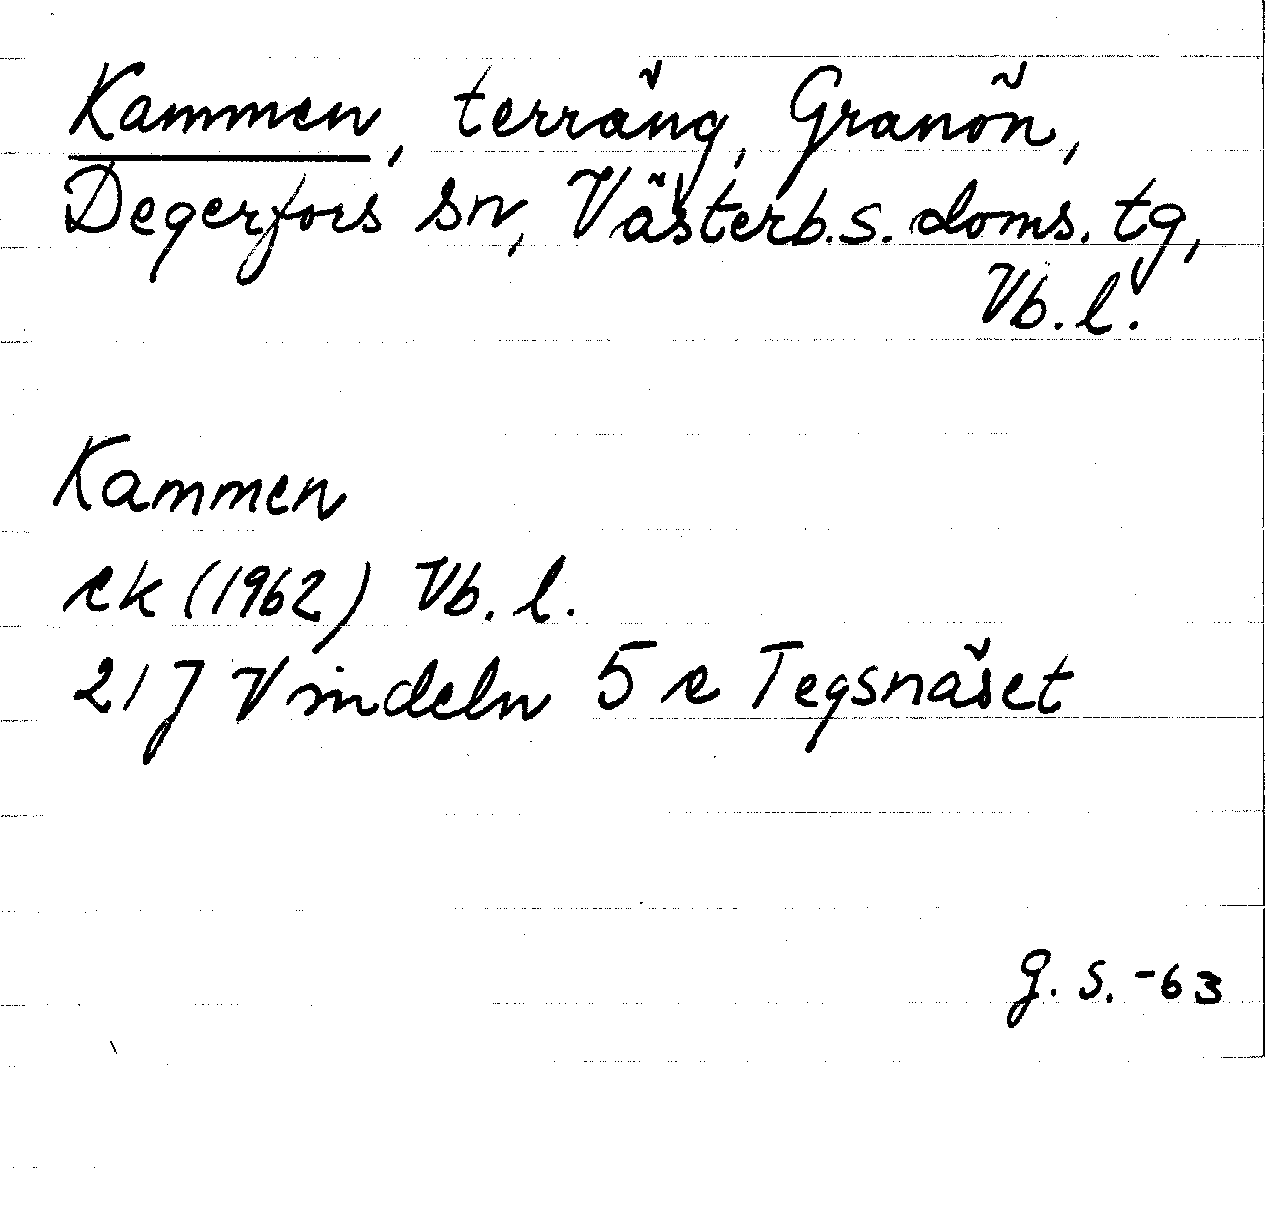 Kammen, terräng, Granön,
Degerfors sn, Västerb.s. doms. tg,
Vb. l.
Kammen
ek (1962) Vb. l.
21 J Vindeln 5 e Tegsnäset
g. s. -63